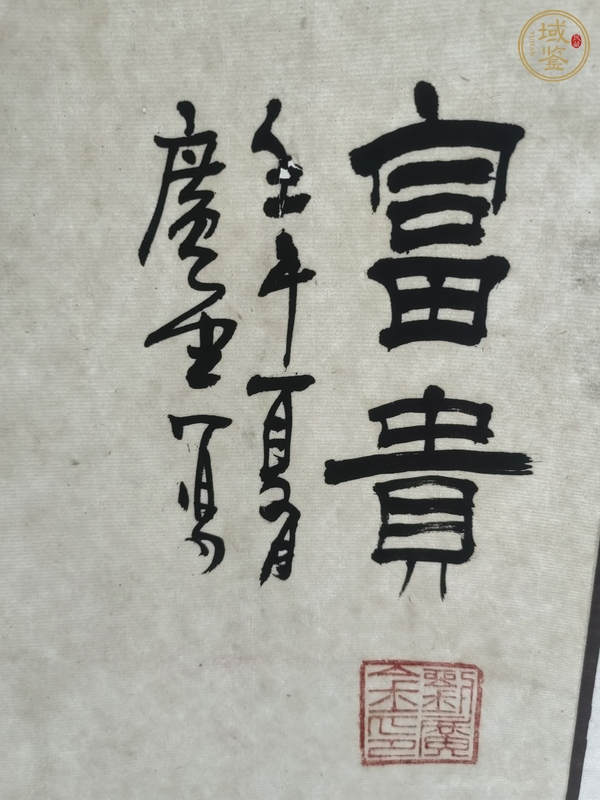 富貴
壬午夏月
廣寫
劉廣
域鉴